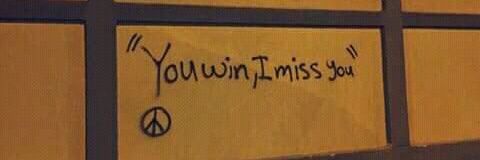 "You win, I miss you"